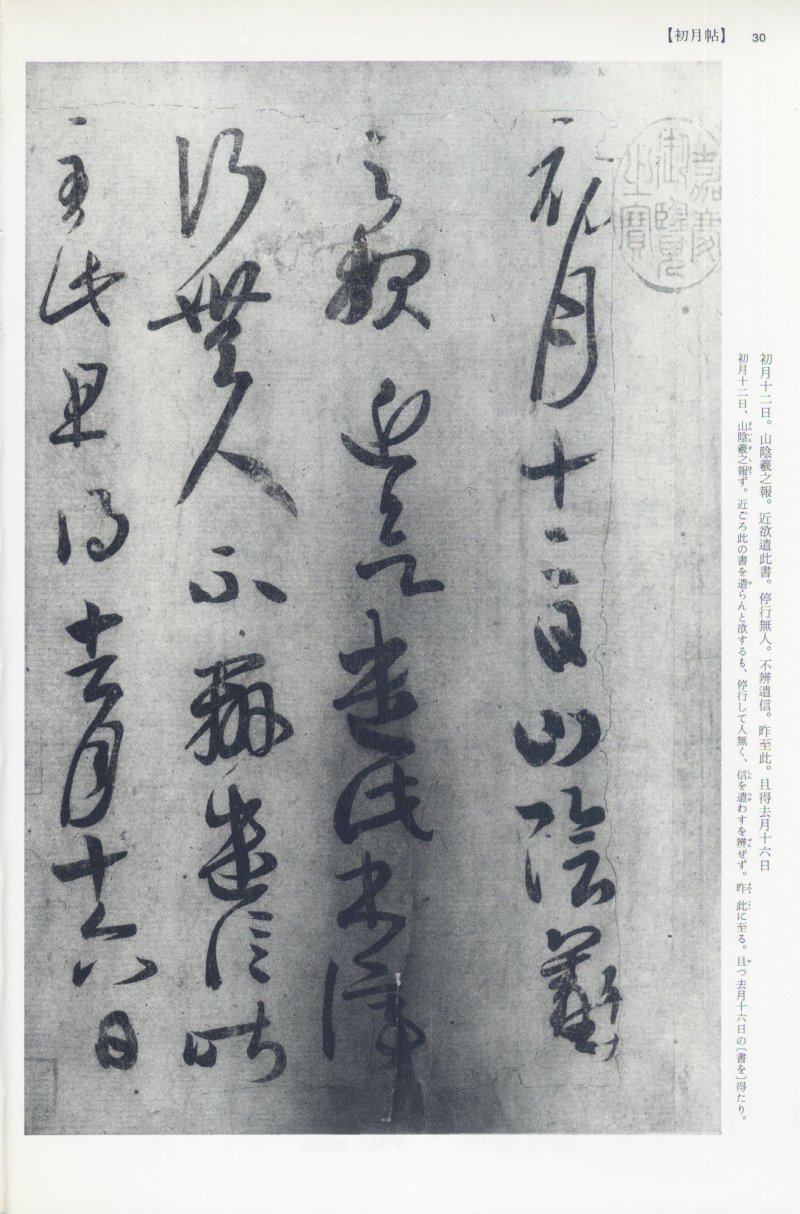 【初月帖】 30
嘉慶
御覽
之寶
初月十二日。山陰羲之報。近欲遣此書。停行無人。不辨遣信。昨至此。且得去月十六日
初月十二日、山陰羲之報ず。近ごろ此の書を遣らんと欲するも、停行して人無く、信を遣わすを辨ぜず。昨此に至る。且つ去月十六日の〔書を〕得たり。
初月十二日山陰羲
之報近欲遣此書停
行無人不辦遣信昨
至此且得去月十六日